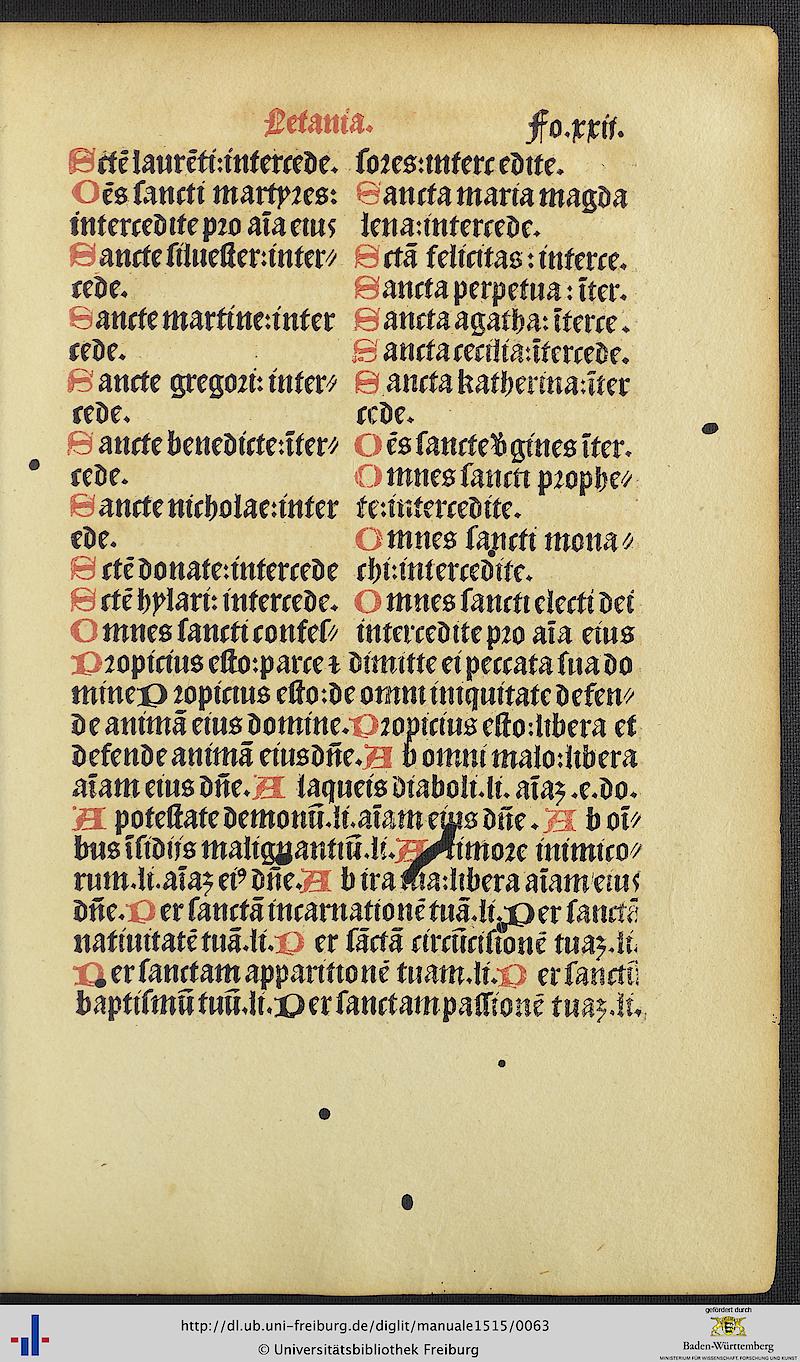 Letania.
Fo.xxii.
Sctē laurēti:intercede.
Oēs sancti martyres:
intercedite pro aīa eius
Sancte siluester:inter⸗
cede.
Sancte martine:inter
cede.
Sancte gregori: inter⸗
cede.
Sancte benedicte:īter⸗
cede.
Sancte nicholae:inter
ede.
Sctē donate:intercede
Sctē hylari: intercede.
Omnes sancti confes⸗
sores:intercedite.
Sancta maria magda
lena:intercede.
Sctā felicitas: interce.
Sancta perpetua: īter.
Sancta agatha: īterce.
Sancta cecilia:ītercede.
Sancta katherina:īter
cede.
Oēs sancte v̄gines īter.
Omnes sancti prophe⸗
te:intercedite.
Omnes sancti mona⸗
chi:intercedite.
Omnes sancti electi dei
intercedite pro aīa eius
Propicius esto:parce ⁊ dimitte ei peccata sua do
mine Propicius esto:de omni iniquitate defen⸗
de animā eius domine.Propicius esto:libera et
defende animā eius dn̄e.Ab omni malo:libera
aīam eius dn̄e.A laqueis diaboli.li. aīaꝫ .e.do.
A potestate demonū.li.aīam eius dn̄e. Ab oī⸗
bus īsidijs malignantiū.li.A timore inimico⸗
rum.li.aīaꝫ eiꝰ dn̄e.Ab ira tua:libera aīam eius
dn̄e.Per sanctā incarnationē tuā.li.Per sanctā
natiuitatē tuā.li.Per sāctā circūcisionē tuaꝫ.li.
Per sanctam apparitionē tuam.li.Per sanctū
baptismū tuū.li.Per sanctam passionē tuaꝫ.li.
http://dl.ub.uni-freiburg.de/diglit/manuale1515/0063
© Universitätsbibliothek Freiburg
gefördert durch
Baden-Württemberg
MINISTERIUM FÜR WISSENSCHAFT, FORSCHUNG UND KUNST